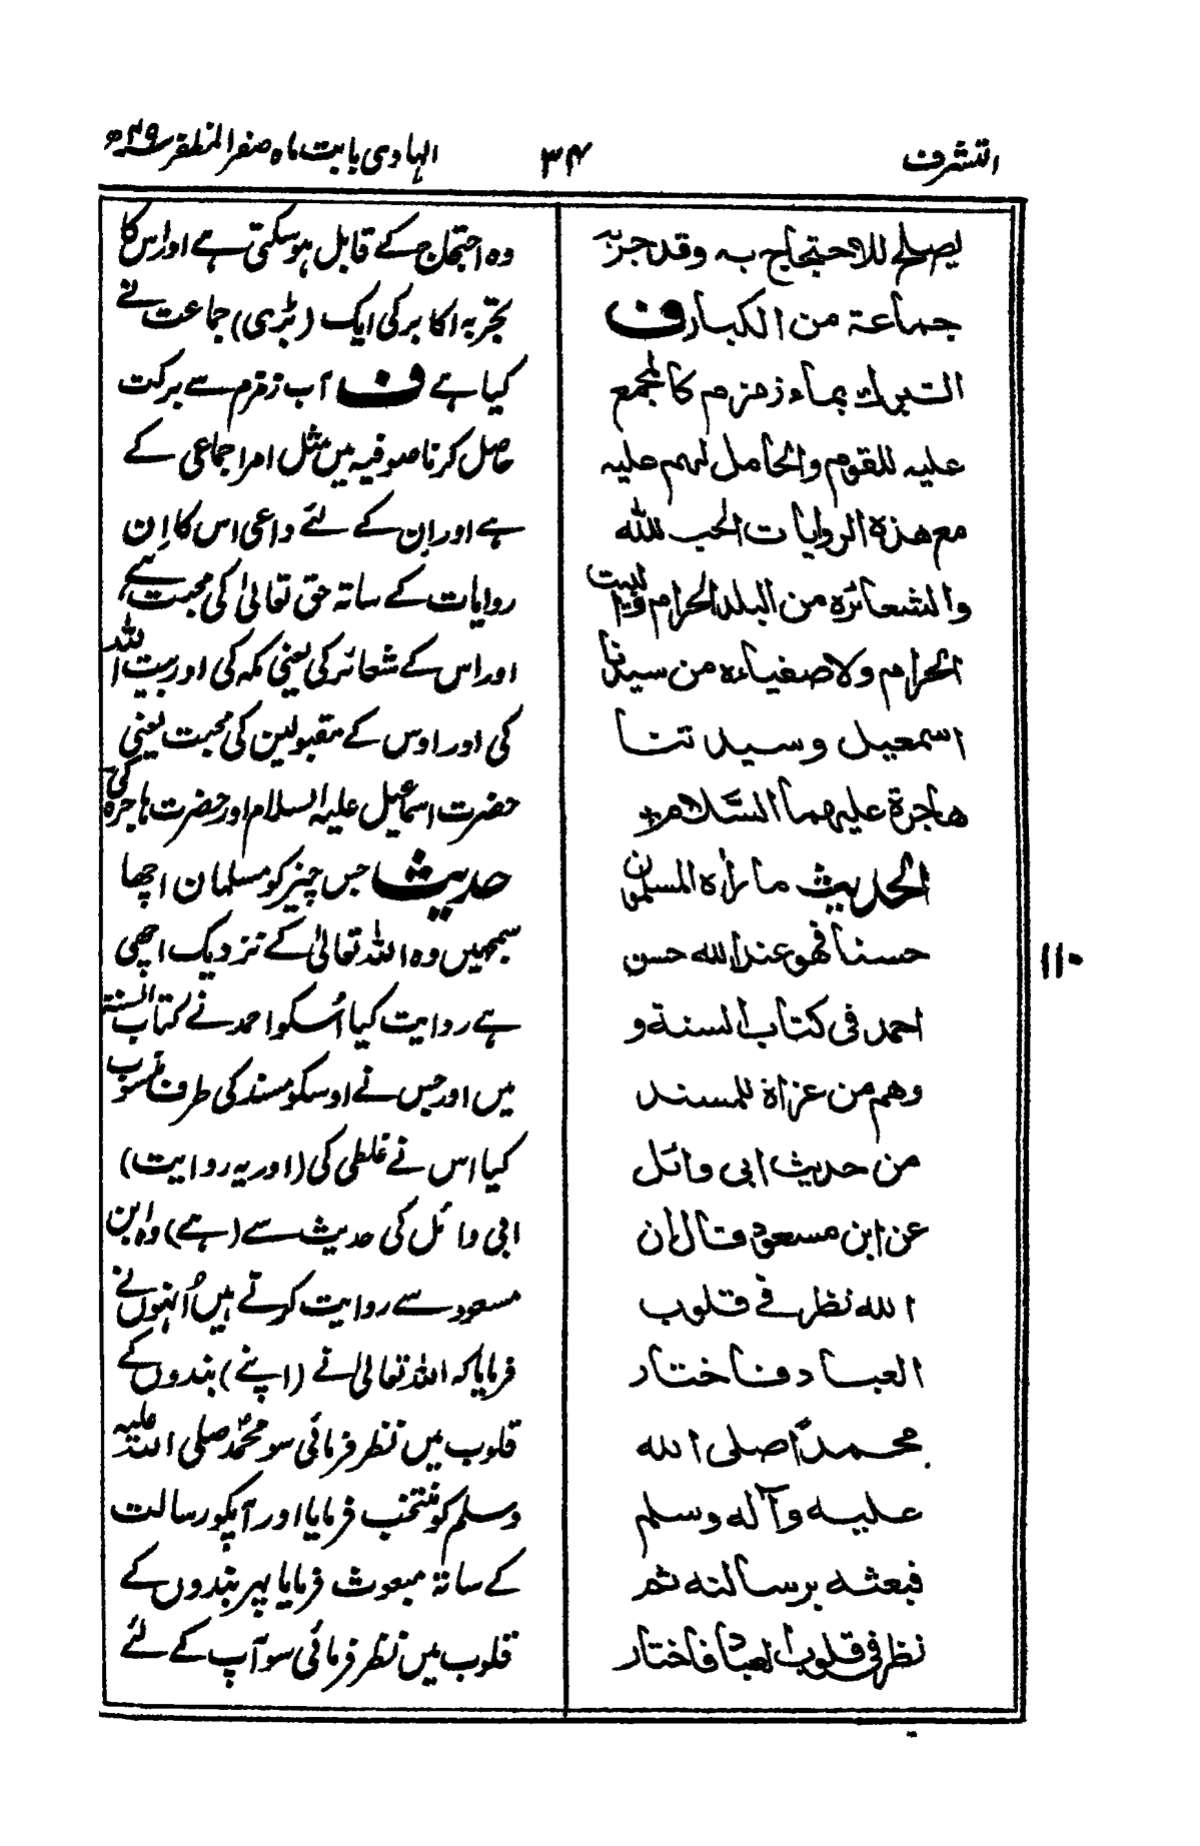 التشرف
۳۴
الہادی بابت ماہ صفر المظفر ۴۹ھ
یصلح للاحتجاج به وقد جربه
جماعة من الکبار ف
التبرك بماء زمزم کالمجمع
علیه للقوم والحامل لهم علیه
مع هذه الروایات الحب لله
والشعائره من البلد الحرام والبیت
الحرام ولاصفیاءه من سیدنا
اسمعیل وسیدتنا
هاجرة علیهما السّلام
الحدیث ما رأه المسلمون
حسنا فهو عند الله حسن
احمد فی کتاب السنة و
وهم من عزاة للمسند
من حدیث ابی وائل
عن ابن مسعود قال ان
الله نظر فی قلوب
العباد فاختار
محمداً صلی الله
علیه وآله وسلم
فبعثه برسالته ثم
نظر فی قلوب العباد فاختار
وہ احتجاج کے قابل ہوسکتی ہے اور اس کا
تجربہ اکابر کی ایک (بڑی) جماعت نے
کیا ہے ف آب زمزم سے برکت
حاصل کرنا صوفیہ میں مثل امر اجماعی کے
ہے اور ان کے لئے داعی اس کا اِن
روایات کے ساتہ حق تعالیٰ کی محبت ہے
اور اس کے شعائر کی یعنی مکہ کی اور بیت اللہ
کی اور اوس کے مقبولین کی محبت یعنی
حضرت اسماعیل علیہ السلام اور حضرت ہاجرہ کی
حدیث جس چیز کو مسلمان اچھا
سمجھیں وہ اللہ تعالیٰ کے نزدیک اچھی
ہے روایت کیا اُسکو احمد نے کتاب السنۃ
میں اور جس نے اوسکو مسند کی طرف منسوب
کیا اس نے غلطی کی (اور یہ روایت)
ابی وائل کی حدیث سے (ہے) وہ ابن
مسعود سے روایت کرتے ہیں اُنہوں نے
فرمایا کہ اللہ تعالیٰ نے (اپنے) بندوں کے
قلوب میں نظر فرمائی سو محمد صلی اللہ علیہ
وسلم کو منتخب فرمایا اور آپکو رسالت
کے ساتہ مبعوث فرمایا پہر بندوں کے
قلوب میں نظر فرمائی سو آپ کے لئے
۱۱۰